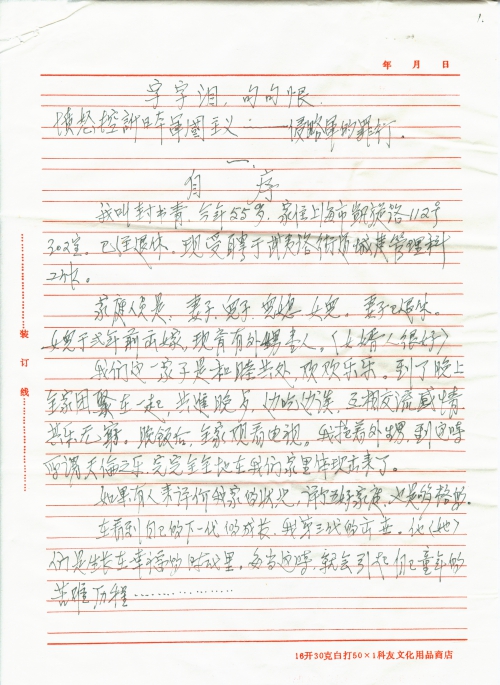 1.
年 月 日
字字泪，句句恨．
愤怒控诉日本军国主义——侵略军的罪行．
一、
自 序
我叫封书青，今年55岁，家住上海市凯旋路112号
302室。已经退休。现受聘于武夷路街道城建管理科
工作。
家庭人员是：妻子、儿子、儿媳、女儿。妻子已退休。
女儿于弍年前出嫁，现育有外甥壹人。（女婿人很好）
我们这一家子是和睦共处，欢欢乐乐。到了晚上
全家团聚在一起，共进晚歺，边吃边谈，互相交流感情
其乐无穷。晚饭后，全家观看电视。我抱着外甥，到这时
所谓天伦之乐，完完全全地在我们家里体现出来了。
如果有人来评价我家的状况，评五好家庭，也是够格的。
在看到自己的下一代的成长，我第三代的
们是生长在幸福的时代里。每当这时，就会引起自己童年的
苦难历程……………
装
订
线
16开30克白打50×1科友文化用品商店